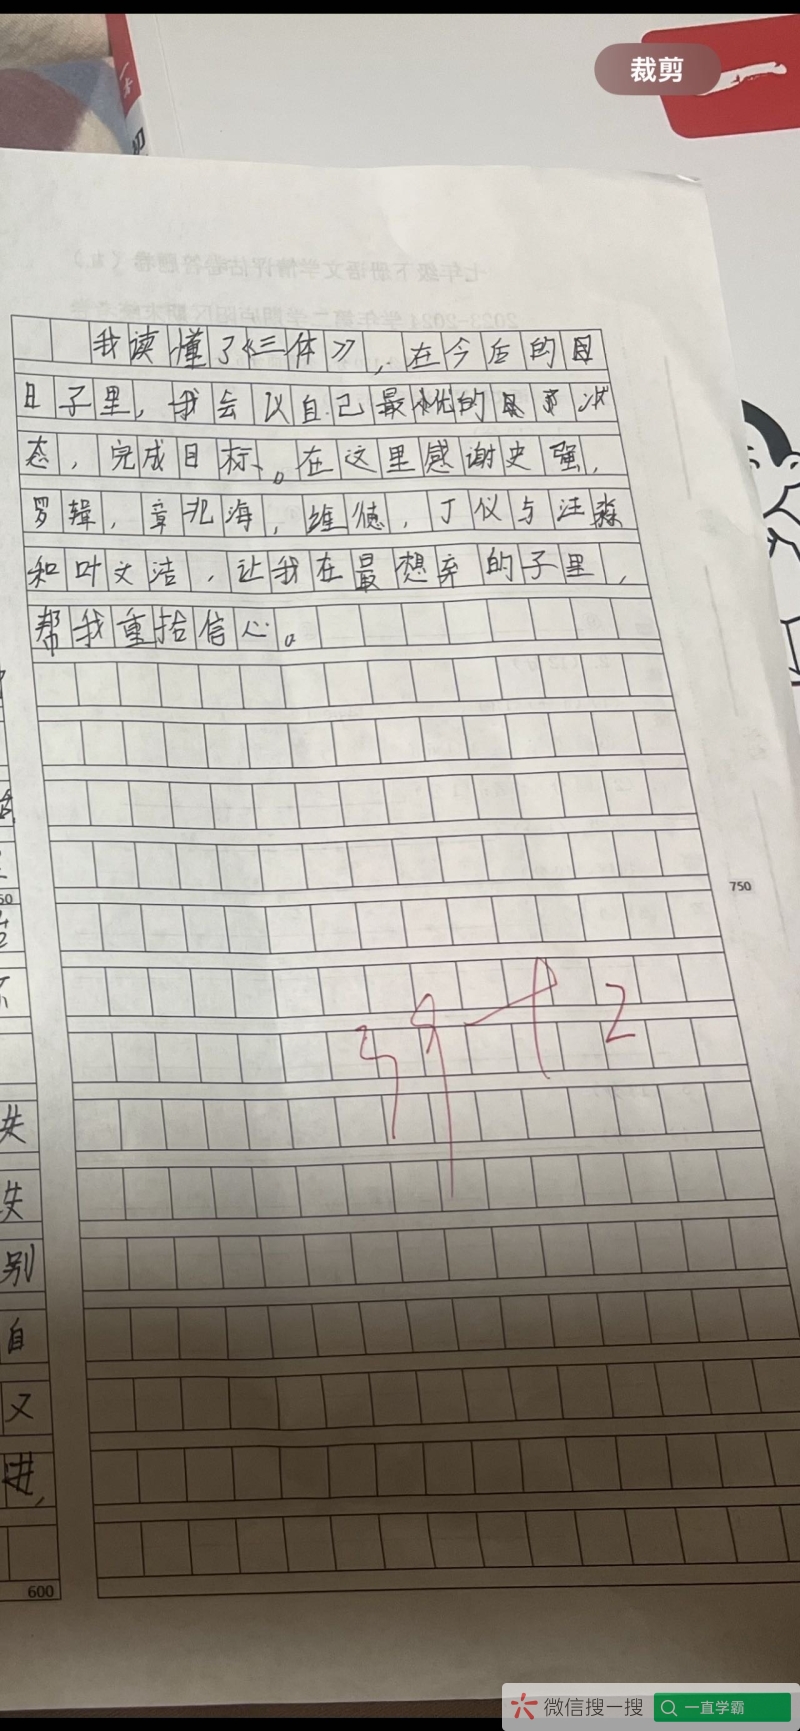 裁剪
我读懂了《三体》，在今后的
日子里，我会以自己最优的状
态，完成目标。在这里感谢史强，
罗辑，章北海，维德，丁仪与汪淼
和叶文洁，让我在最想弃的子里，
帮我重拾信心。
750
失
失
别
自
又
进，
600
微信搜一搜
一直学霸